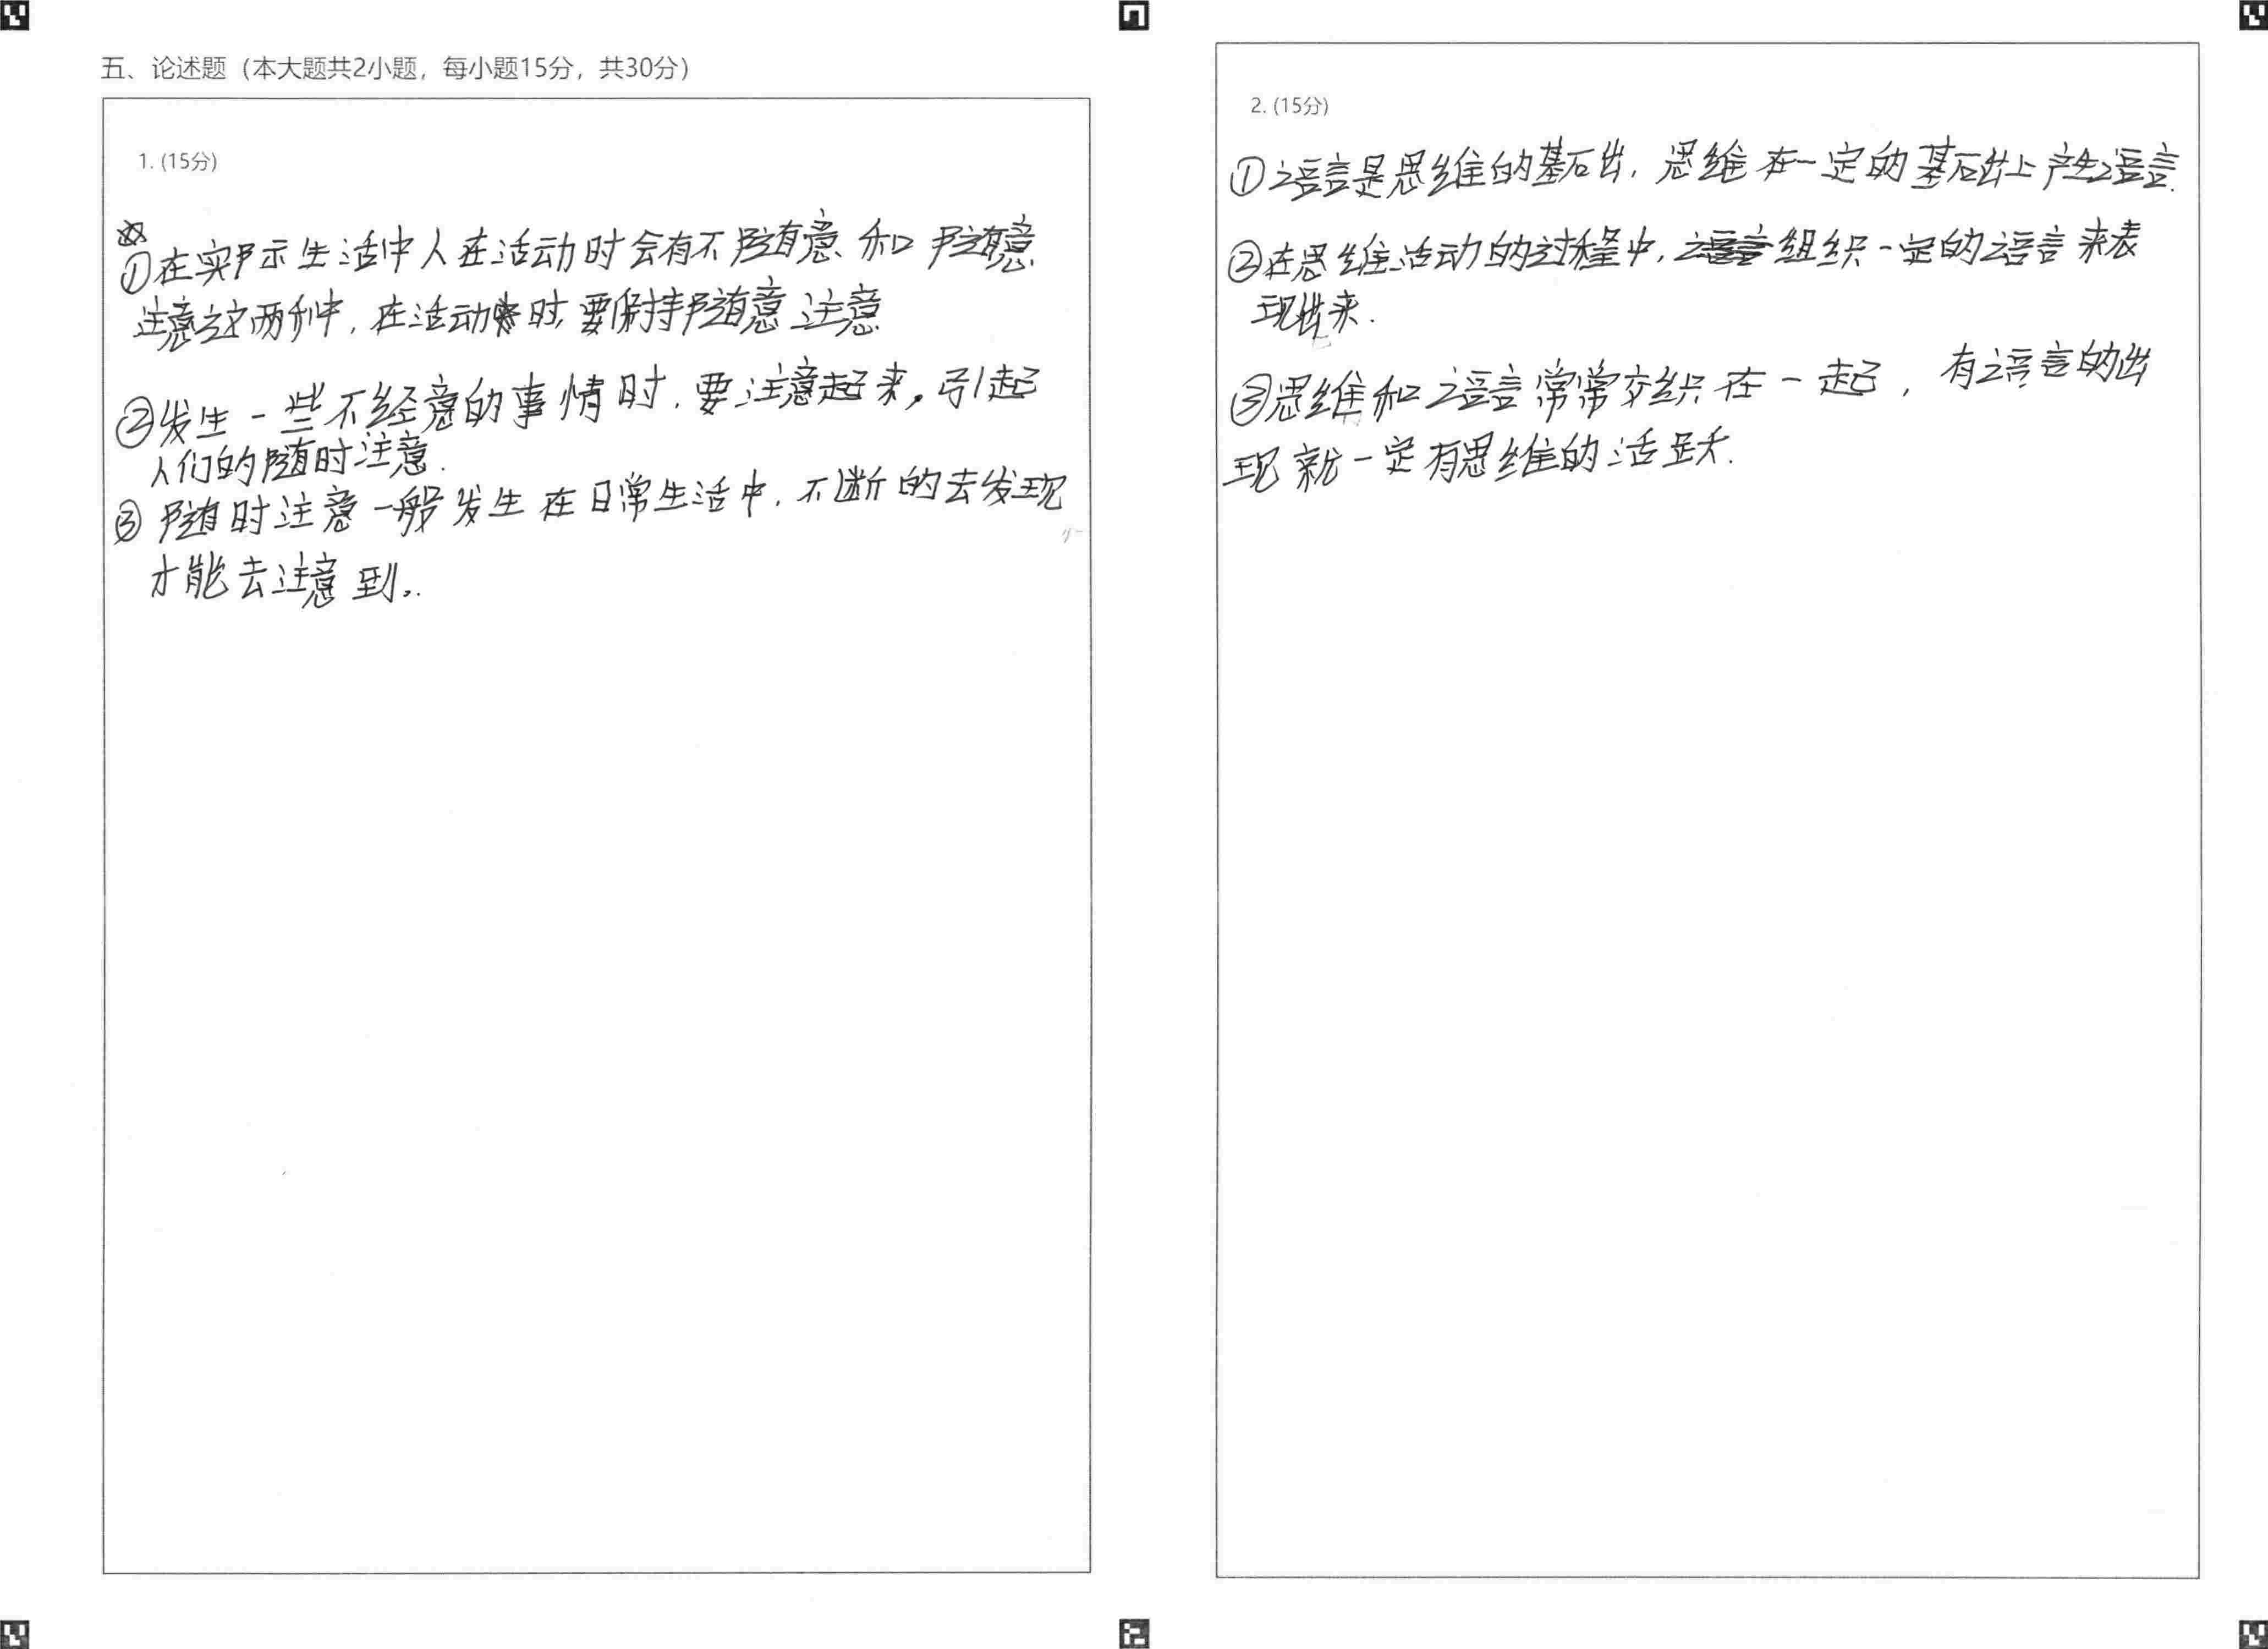 五、论述题（本大题共2小题，每小题15分，共30分）
1. (15分)
①在实际生活中人在活动时会有不随意、和随意
注意这两种，在活动时，要保持随意注意
②发生一些不经意的事情时，要注意起来，引起
人们的随时注意.
③随时注意一般发生在日常生活中，不断的去发现
才能去注意到，.
2. (15分)
①语言是思维的基础，思维在一定的基础上产生语言.
②在思维活动的过程中，组织一定的语言来表
现出来.
③思维和语言常常交织在一起，有语言的出
现就一定有思维的活跃.